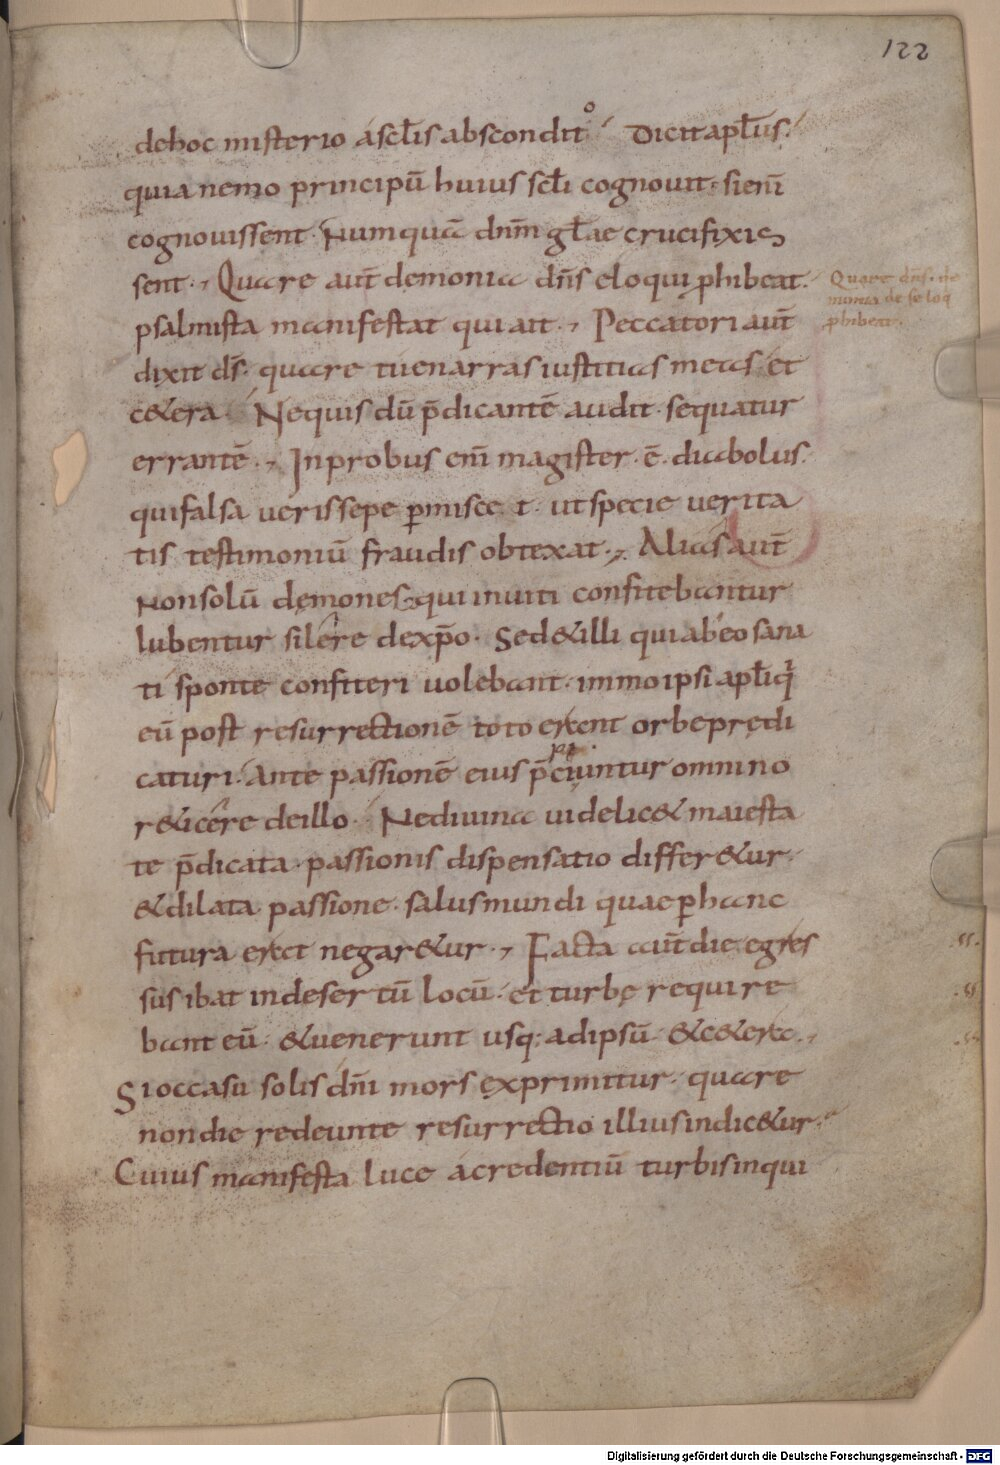 122
dehoc misterio ascl̄is abscondito Dicit apl̄us.
quia nemo principū huius scl̄i cognouit· si enī
cognouissent· Numquā dnm̄ gl̄ae crucifixis
sent·, Quare aut̄ demonia dn̄s eloqui ꝓhibeat.
Quare dn̄s· de
monia de se loq
ꝓhibeat.
psalmista manifestat qui ait·, Peccatori aut̄
dixit ds̄· quare tu enarras iustitias meas et
c&era· Nequis dū p̄dicantē audit· sequatur
errantē·, Inprobus enī magister· ē· diabolus.
qui falsa ueris sepe ꝑmisce t· ut specie uerita
tis testimoniū fraudis obtexat·, Alias aut̄
Non solū dęmones qui inuiti confitebantur
Iubentur silere dexp̄o· Sed & illi qui ab eo sana
ti sponte confiteri uolebant· immo ipsi apl̄i q
eū post resurrectionē toto erant orbe prędi
caturi· Ante passionē eius p̄ciuntur omnino
pi
r&icere de illo· Ne diuina uidelic& maiesta
te p̄dicata· passionis dispensatio differ&ur·
& dilata passione· salus mundi quae ꝑ hanc
futura erat negar&ur·, Facta aut̄ die egres
sus ibat in desertū locū· et turbę require
bant eū· & uenerunt usq; ad ipsū· & c&era·,
Si occasu solis dn̄i mors exprimitur· quare
non die redeunte resurrectio illius indic&ur·
Cuius manifesta luce a credentiū turbis inqui
Digitalisierung gefördert durch die Deutsche Forschungsgemeinschaft - DFG